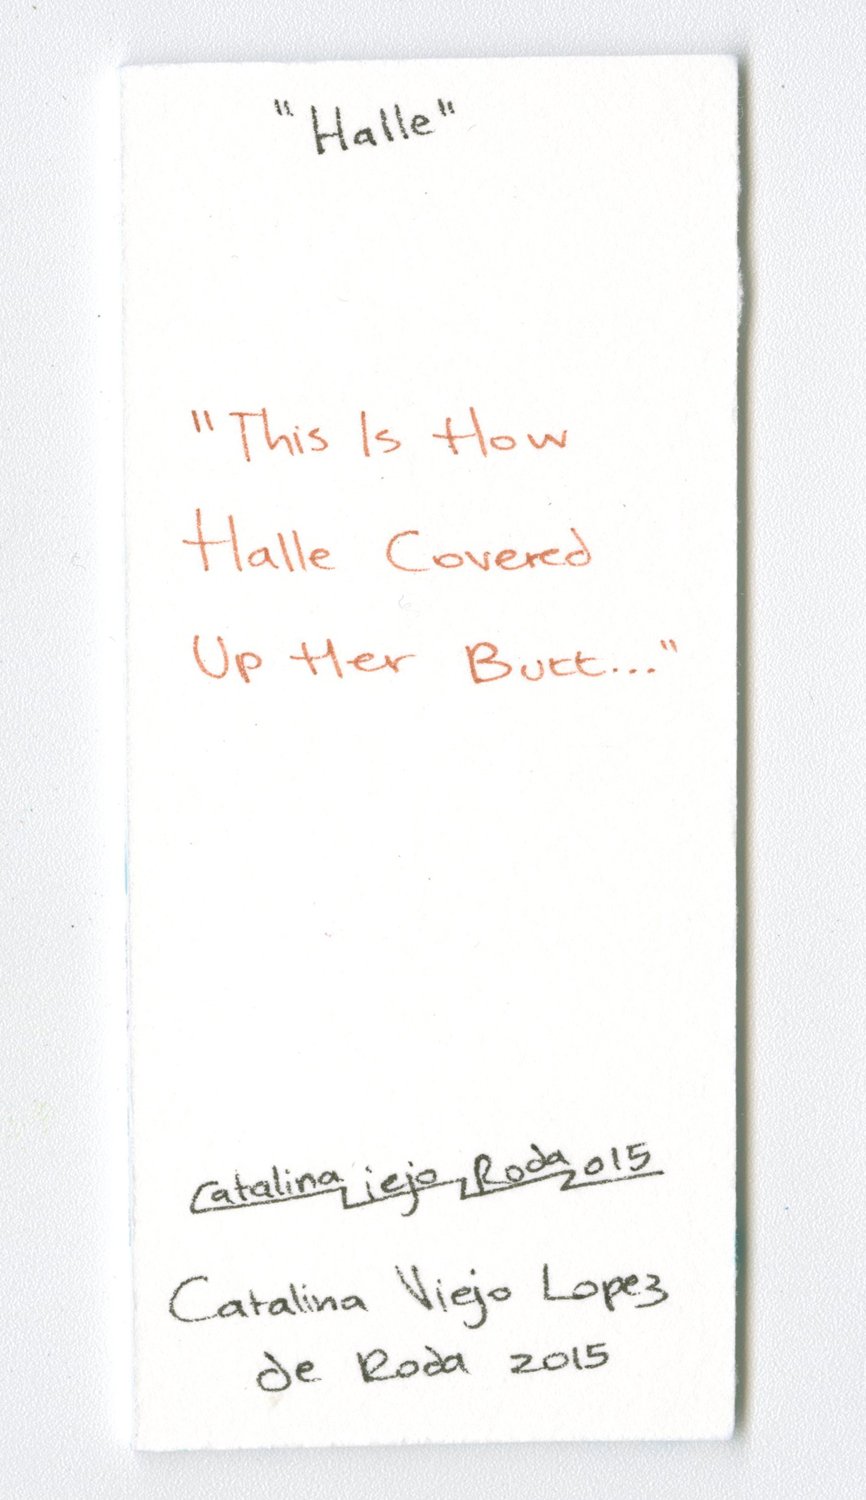 "Halle"
"This Is How
Halle Covered
Up Her Butt..."
Catalina Viejo Roda 2015
Catalina Viejo Lopez
de Roda 2015